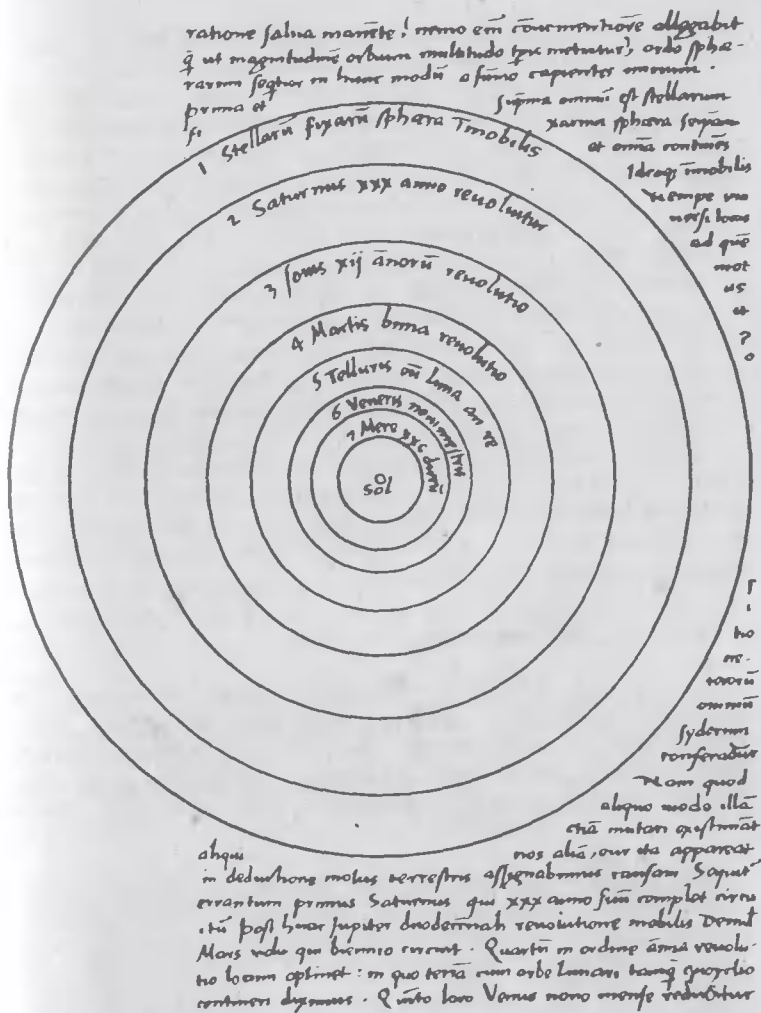 ratione salua manēte, nemo em̄ cōuenientiorē allegabit
q̄ ut magnitudinē orbium multitudo tp̄is metiatur, ordo sphæ-
rarum sequitur in hunc modū a summo capientes initium.
prima et suprema omniū est stellarum
fi xarum sphæra seipsam
et omnia continēs
Ideoqȝ īmobilis
nempe uni
uersi locus
ad quē
mot
us
et
1 Stellarū fixarū sphæra īmobilis
2 Saturnus xxx anno reuoluitur
3 Iouis xij ānorū reuolutio
4 Martis bima reuolutio
5 Telluris cū luna an re
6 Veneris nonimestris
7 Merc xxc dierū
Sol
p
i
tio
ce-
terorū
omniū
syderum
conferatur
Nam quod
aliquo modo illā
etiā mutari existimāt
aliqui nos aliā, cur ita appareat
in deductione motus terrestris assignabimus causam Sequit
errantium primus Saturnus qui xxx anno suū complet circu
itū post hunc Jupiter duodecennali reuolutione mobilis Deind
Mars uolu qui biennio circuit. Quartū in ordine ānua reuolu-
tio locum optinet: in quo terrā cum orbe lunari tanq̄ epicyclio
contineri diximus. Quinto loco Venus nono mense reducitur